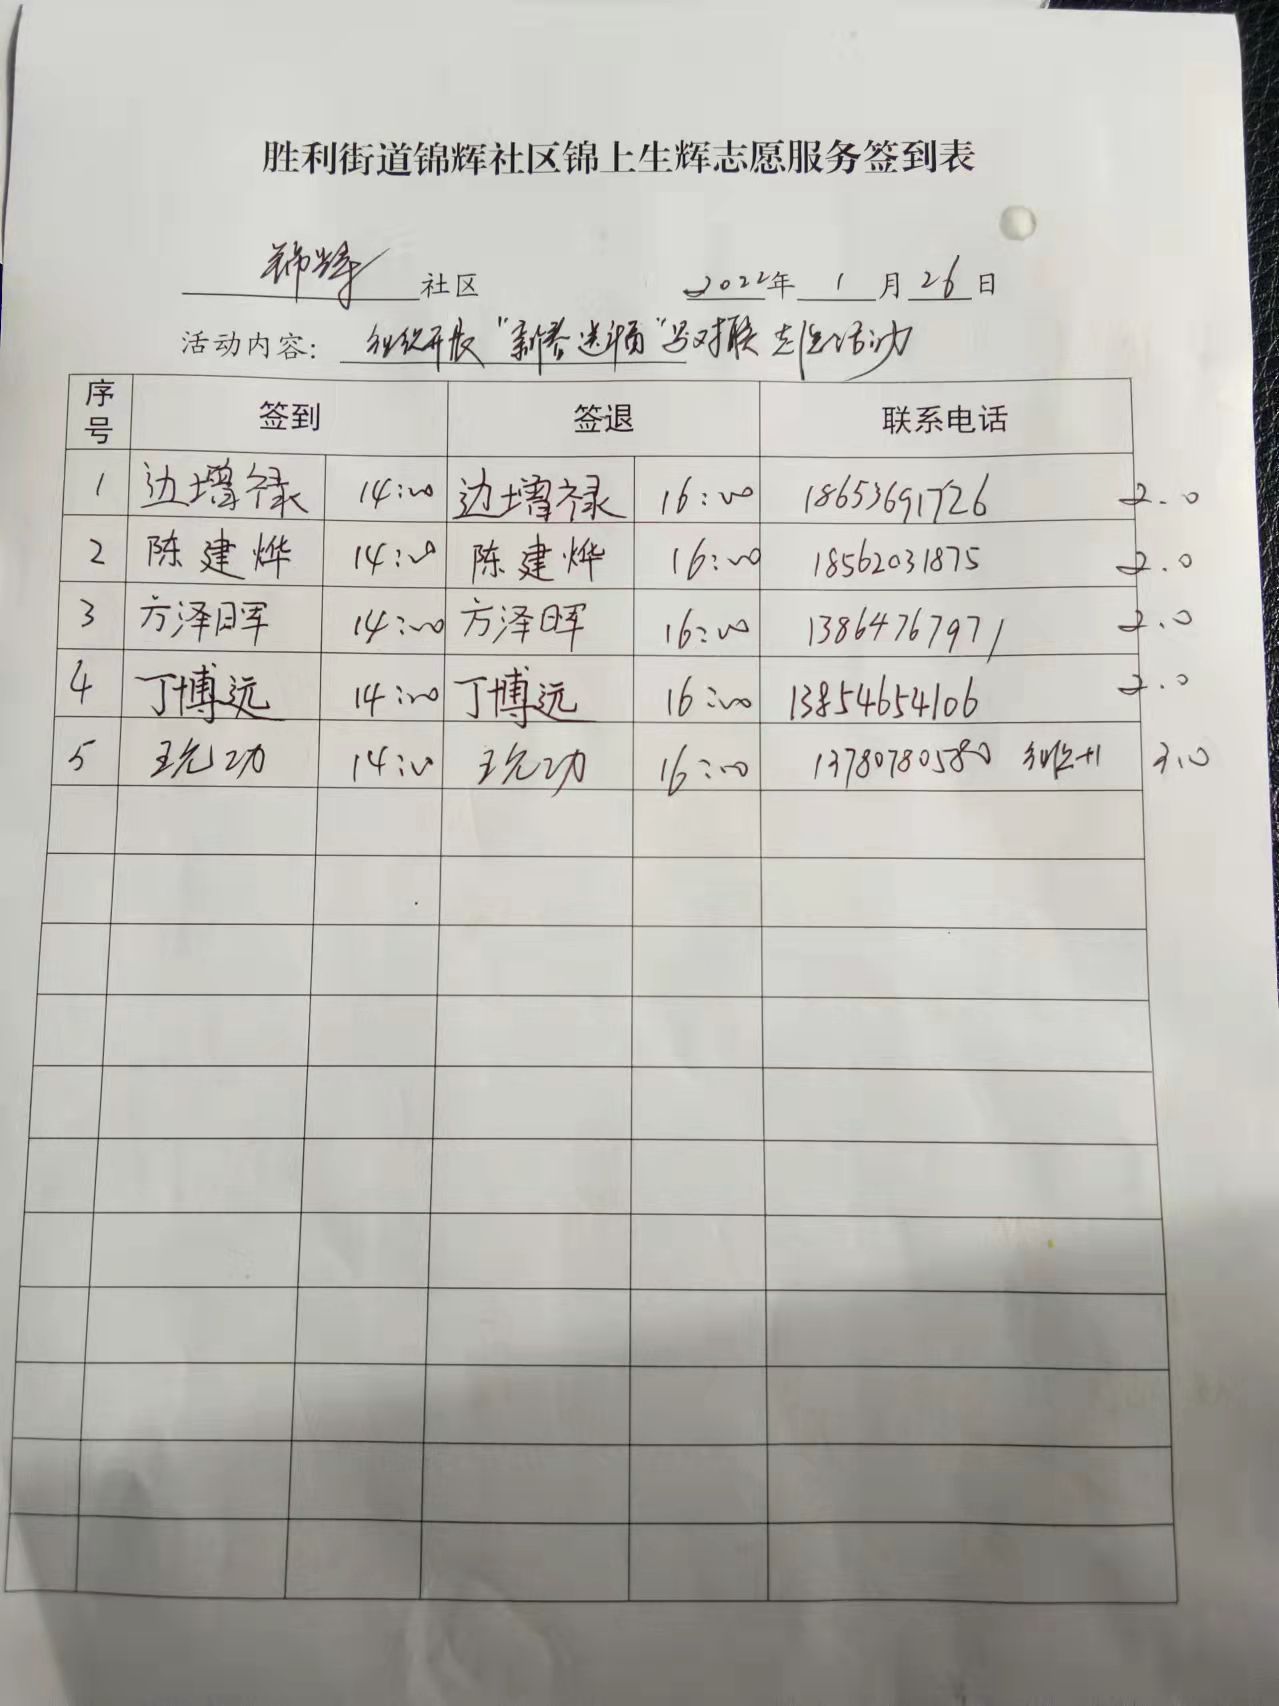 胜利街道锦辉社区锦上生辉志愿服务签到表
锦辉 社区 2022年 1 月 26 日
活动内容: 组织开展"新春送福"写对联志愿活动
序号 签到 签退 联系电话
1 边增禄 14:00 边增禄 16:00 18653691726 2.0
2 陈建烨 14:00 陈建烨 16:00 18562031875 2.0
3 方泽晖 14:00 方泽晖 16:00 13864767971 2.0
4 丁博远 14:00 丁博远 16:00 13854654106 2.0
5 功 14:00 功 16:00 13780780580 +1 3.0